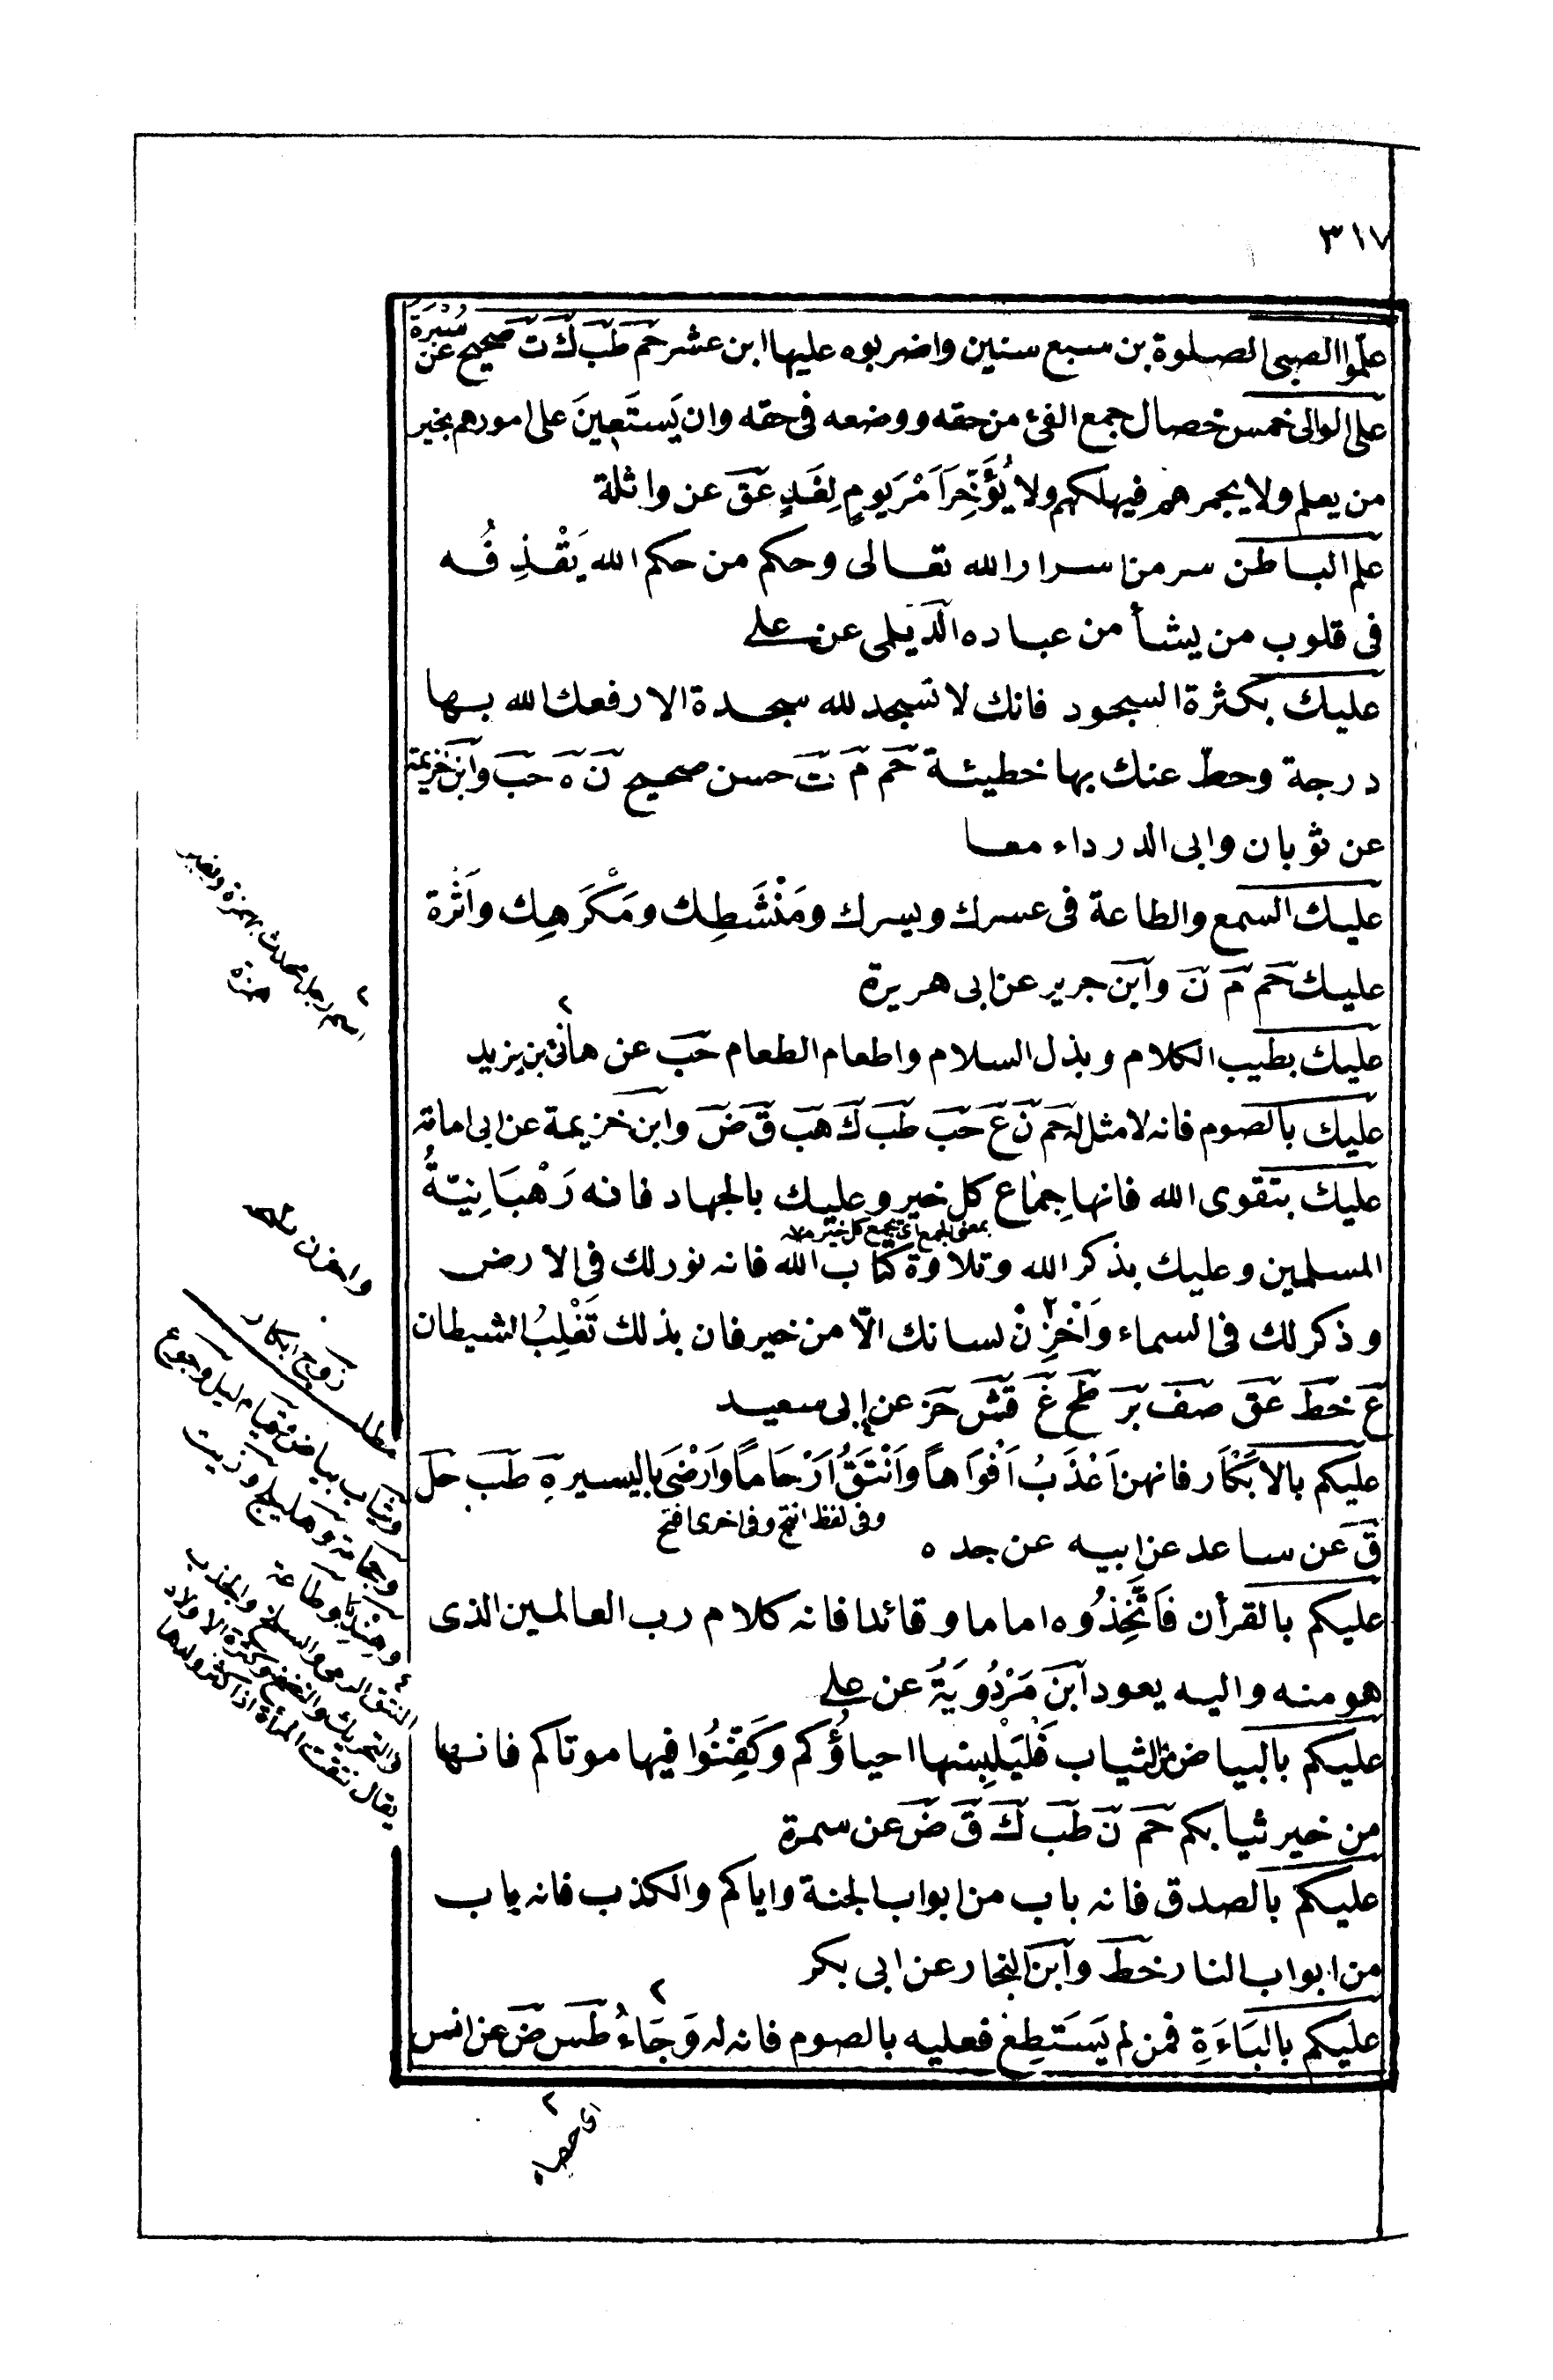 ٣١٧
علموا الصبى الصلوة بن سبع سنين واضربوه عليها ابن عشر حم طب ك ت صحيح عن سُبْرَة
على الوالى خمس خصال جمع الفئ من حقه ووضعه فى حقه وان يَستَعينَ على امورهم بخير
من يعلم ولا يجمرهم فيهلكهم ولا يُؤَخِّرَ اَمْرَ يومٍ لِغَدٍ عق عن واثلة
علم الباطن سر من اسرار الله تعالى وحكم من حكم الله يَقْذِفُه
فى قلوب من يشأ من عباده الدَّيلمى عن على
عليك بكثرة السجود فانك لا تسجد لله سجدة الا رفعك الله بها
درجة وحط عنك بها خطيئة حم م ت حسن صحيح ن ه حب وابن خزيمة
عن ثوبان وابى الدرداء معا
عليك السمع والطاعة فى عسرك ويسرك ومَنْشَطِك ومَكْرَهِك واَثَرة
عليك حم م ن وابن جرير عن ابى هريرة
عليك بطيب الكلام وبذل السلام واطعام الطعام حب عن هانئ بن يزيد ٢
عليك بالصوم فانه لا مثل له حم ن ع حب طب ك هب ق ض وابن خزيمة عن ابى امامة
عليك بتقوى الله فانها جِماع كل خير وعليك بالجهاد فانه رَهْبَانِيّةُ
بمعنى الجمع اى تجمع كل خير
المسلمين وعليك بذكر الله وتلاوة كتاب الله فانه نور لك فى الارض
وذكر لك فى السماء واَخْزِنْ ٢ لسانك الّا من خير فان بذلك تَغْلِبُ الشيطان
ع خط عق صف بر طح غ قش حز عن ابى سعيد
عليكم بالاَبْكَار فانهن اَعْذَبُ اَفْوَاهاً وَاَنْتَقُ اَرْحَاماً وَاَرْضَى باليسيرِ طب حل
وفى لفظ انتج وفى اخرى افتح
ق عن ساعد عن ابيه عن جده
عليكم بالقرأن فَاتَّخِذُوه اماما وقائدا فانه كلام رب العالمين الذى
هو منه واليه يعود ابن مَرْدُويَةُ عن على
عليكم بالبياض من الثياب فَلْيَلْبِسْها احياؤكم وكَفِّنُوا فيها موتاكم فانها
من خير ثيابكم حم ن طب ك ق ض عن سمرة
عليكم بالصدق فانه باب من ابواب الجنة واياكم والكذب فانه باب
من ابواب النار خط وابن النجار عن ابى بكر
عليكم بالبَاءَةِ فمن لم يَستَطِعْ فعليه بالصوم فانه له وَجَاءُ ٢ طس ض عن انس
٢ اسم رجل محدث بهمزة وبغير
همزة
واخزن
مطلب
زوج ابكار
وثياب بياض وقيام ليل وجوع
وحجامة وهليلج وزيت
النتق الرمى والسلخ والجذب
والتحريك والنفض وكثرة الاولاد
يقال نتقت المرأة اذا كثر ولدها
٢ اى